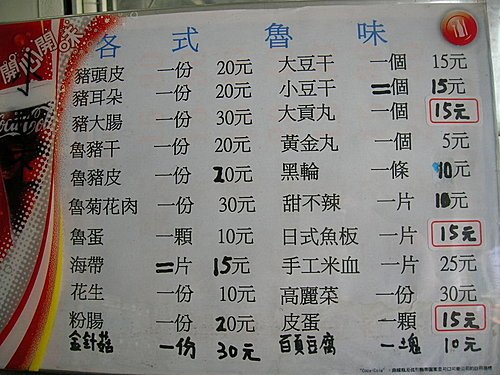 各式魯味
豬頭皮 一份 20元 大豆干 一個 15元
豬耳朵 一份 20元 小豆干 二個 15元
豬大腸 一份 30元 大貢丸 一個 15元
魯豬干 一份 20元 黃金丸 一個 5元
魯豬皮 一份 20元 黑輪 一條 10元
魯菊花肉 一份 30元 甜不辣 一片 10元
魯蛋 一顆 10元 日式魚板 一片 15元
海帶 二片 15元 手工米血 一片 25元
花生 一份 10元 高麗菜 一份 30元
粉腸 一份 20元 皮蛋 一顆 15元
金針菇 一份 30元 百頁豆腐 一塊 10元
開心開味
"Coca-Cola"